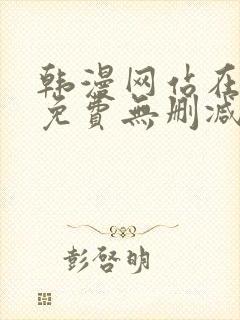 韩漫网站在
免費無删减
彭啓明